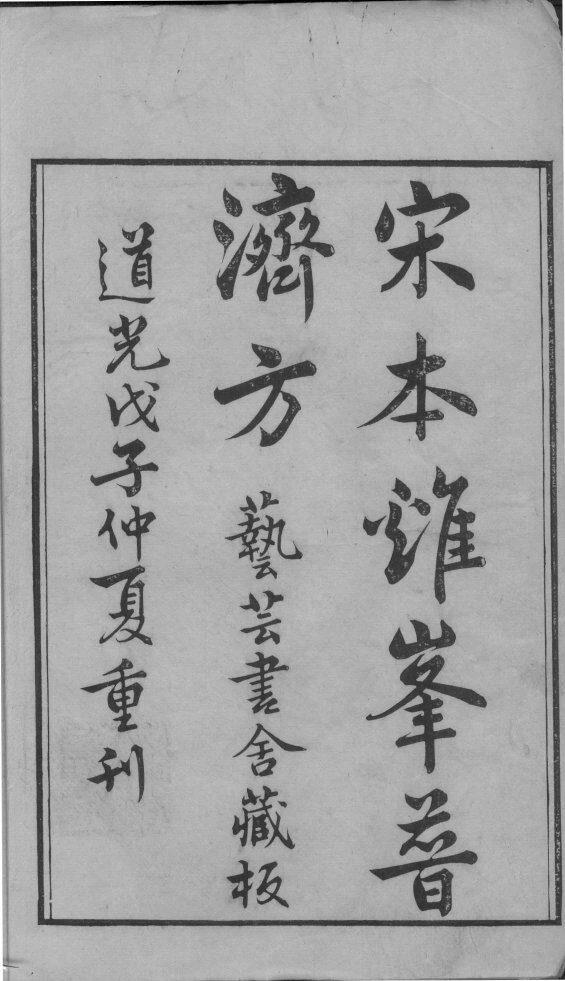 宋本雞峯普
濟方
藝芸書舍藏板
道光戊子仲夏重刊